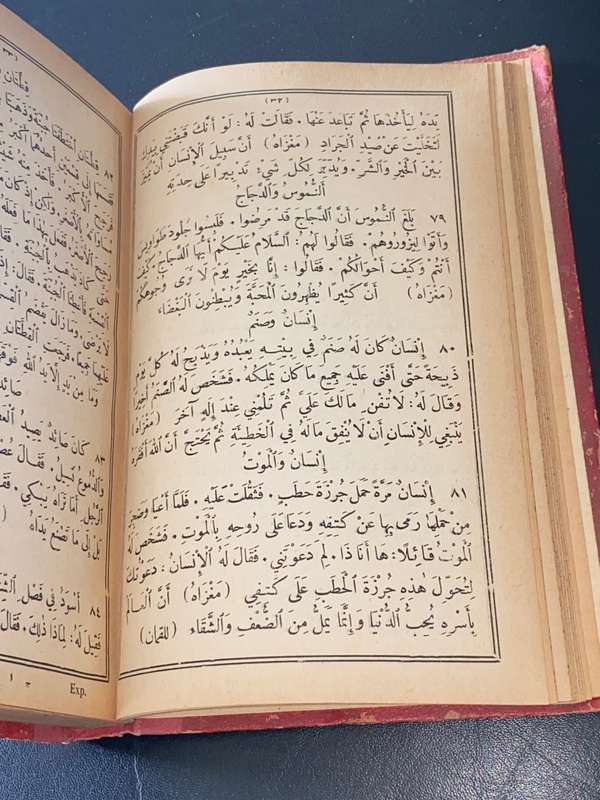 (٣٢)
يَدَهُ لِيَأْخُذَهَا ثُمَّ تَبَاعَدَ عَنْهَا. فَقَالَتْ لَهُ: لَوْ أَنَّكَ قَبَضْتَنِي بِيَدِكَ
لَتَخَلَّيْتَ عَنْ صَيْدِ الْجَرَادِ (مَغْزَاهُ) أَنَّ سَبِيلَ الْإِنْسَانِ أَنْ يُمَيِّزَ
بَيْنَ الْخَيْرِ وَالشَّرِّ. وَيُدَبِّرَ لِكُلِّ شَيْءٍ تَدْبِيرًا عَلَى حِدَتِهِ
اَلنُّمُوسُ وَالدَّجَاجُ
٧٩ بَلَغَ النُّمُوسَ أَنَّ الدَّجَاجَ قَدْ مَرِضُوا. فَلَبِسُوا جُلُودَ طَوَاوِيسَ
وَأَتَوْا لِيَزُورُوهُمْ. فَقَالُوا لَهُمْ: اَلسَّلَامُ عَلَيْكُمْ أَيُّهَا الدَّجَاجُ. كَيْفَ
أَنْتُمْ وَكَيْفَ أَحْوَالُكُمْ. فَقَالُوا: إِنَّا بِخَيْرٍ يَوْمَ لَا نَرَى وُجُوهَكُمْ
(مَغْزَاهُ) أَنَّ كَثِيرًا يُظْهِرُونَ الْمَحَبَّةَ وَيُبْطِنُونَ الْبَغْضَاءَ
إِنْسَانٌ وَصَنَمٌ
٨٠ إِنْسَانٌ كَانَ لَهُ صَنَمٌ فِي بَيْتِهِ يَعْبُدُهُ وَيَذْبَحُ لَهُ كُلَّ يَوْمٍ
ذَبِيحَةً حَتَّى أَفْنَى عَلَيْهِ جَمِيعَ مَا كَانَ يَمْلِكُهُ. فَشَخَصَ لَهُ الصَّنَمُ أَخِيرًا
وَقَالَ لَهُ: لَا تُفْنِ مَالَكَ عَلَيَّ ثُمَّ تَلُمْنِي عِنْدَ إِلٰهٍ آخَرَ (مَغْزَاهُ)
يَنْبَغِي لِلْإِنْسَانِ أَنْ لَا يُنْفِقَ مَالَهُ فِي الْخَطِيئَةِ ثُمَّ يَحْتَجَّ أَنَّ اللهَ أَفْقَرَهُ
إِنْسَانٌ وَالْمَوْتُ
٨١ إِنْسَانٌ مَرَّةً حَمَلَ جُرْزَةَ حَطَبٍ. فَثَقُلَتْ عَلَيْهِ. فَلَمَّا أَعْيَا وَضَجِرَ
مِنْ حَمْلِهَا رَمَى بِهَا عَنْ كَتِفِهِ وَدَعَا عَلَى رُوحِهِ بِالْمَوْتِ. فَشَخَصَ لَهُ
الْمَوْتُ قَائِلًا: هَا أَنَا ذَا. لِمَ دَعَوْتَنِي. فَقَالَ لَهُ الْإِنْسَانُ: دَعَوْتُكَ
لِتُحَوِّلَ هٰذِهِ جُرْزَةَ الْحَطَبِ عَلَى كَتِفِي (مَغْزَاهُ) أَنَّ الْعَالَمَ
بِأَسْرِهِ يُحِبُّ الدُّنْيَا وَإِنَّمَا يَمَلُّ مِنَ الضُّعْفِ وَالشَّقَاءِ (للقمان)
(٣٣)
٨٢
٨٣ كَانَ صَائِدٌ يَصِيدُ
وَالدُّمُوعُ تَسِيلُ. فَقَالَ
الرَّجُلِ أَمَا تَرَاهُ يَبْكِي. فَقَالَ
بَلْ إِلَى مَا تَصْنَعُ يَدَاهُ
٨٤ أَسْوَدُ فِي فَصْلِ
فَقِيلَ لَهُ: لِمَاذَا ذٰلِكَ. فَقَالَ
Exp.